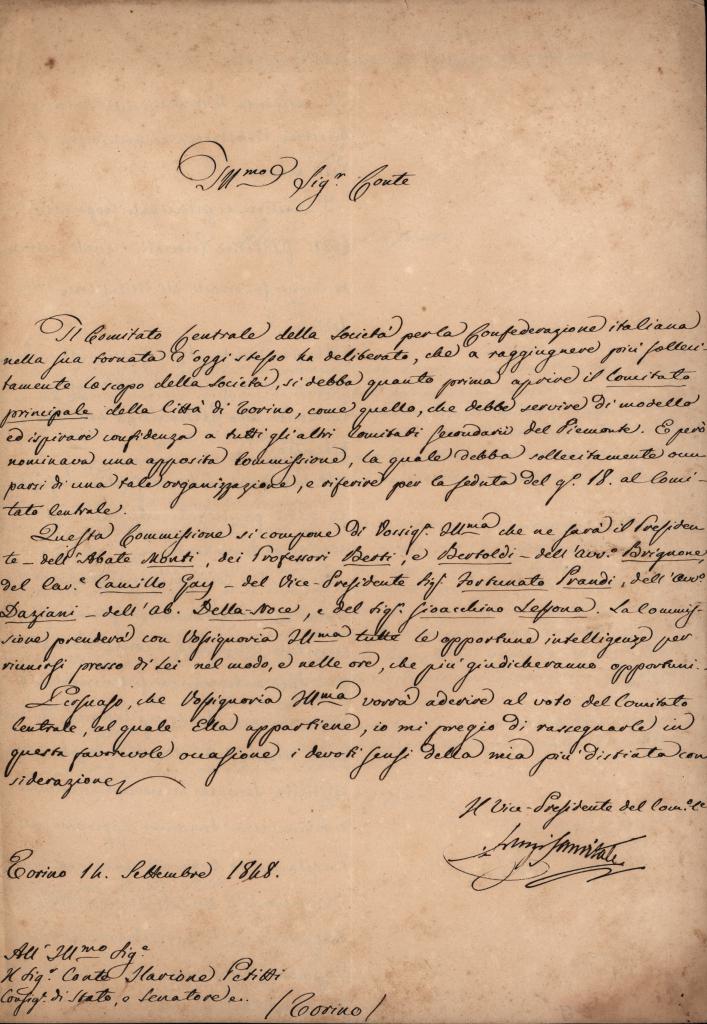 Ill.mo Sig.r Conte
Il Comitato Centrale della Società per la Confederazione italiana
nella sua tornata d'oggi stesso ha deliberato, che a raggiugnere più solleci-
tamente lo scopo della Società, si debba quanto prima aprire il Comitato
principale della Città di Torino, come quello, che debbe servire di modello
ed ispirare confidenza a tutti gli altri Comitati secondarii del Piemonte. E però
nominava una apposita Commissione, la quale debba sollecitamente occu-
parsi di una tale organizzazione, e riferire per la seduta del g.º 18. al Comi-
tato Centrale.
Questa Commissione si compone di Vossig.a Ill.ma che ne sarà il Presiden-
te – dell'Abate Monti, dei Professori Berti, e Bertoldi – dell'Avv.º Brignone,
del Cav.e Camillo Gay – del Vice-Presidente Sig.r Fortunato Prandi, dell'Avv.º
Daziani – dell'Ab. Della-Noce, e del Sig.r Gioacchino Lessona. La Commis-
sione prenderà con Vossignoria Ill.ma tutte le opportune intelligenze per
riunirsi presso di Lei nel modo, e nelle ore, che più giudicheranno opportuni.
Persuaso, che Vossignoria Ill.ma vorrà aderire al voto del Comitato
Centrale, al quale Ella appartiene, io mi pregio di rassegnarle in
questa favorevole occasione i devoti sensi della mia più distinta con
siderazione
Il Vice-Presidente del Com.º C.e
Luigi Sanvitale
Torino 14. Settembre 1848.
All' Ill.mo Sig.e
Il Sig.r Conte Ilarione Petitti
Consig.r di Stato, e Senatore e..
(Torino)